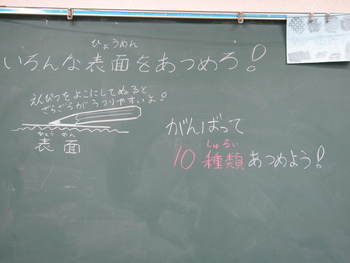 ひょうめん
いろんな表面をあつめろ！
えんぴつをよこにしてぬると、
ざらざらがうつりやすいよ！
ひょうめん
表面
がんばって
しゅるい
10種類あつめよう！